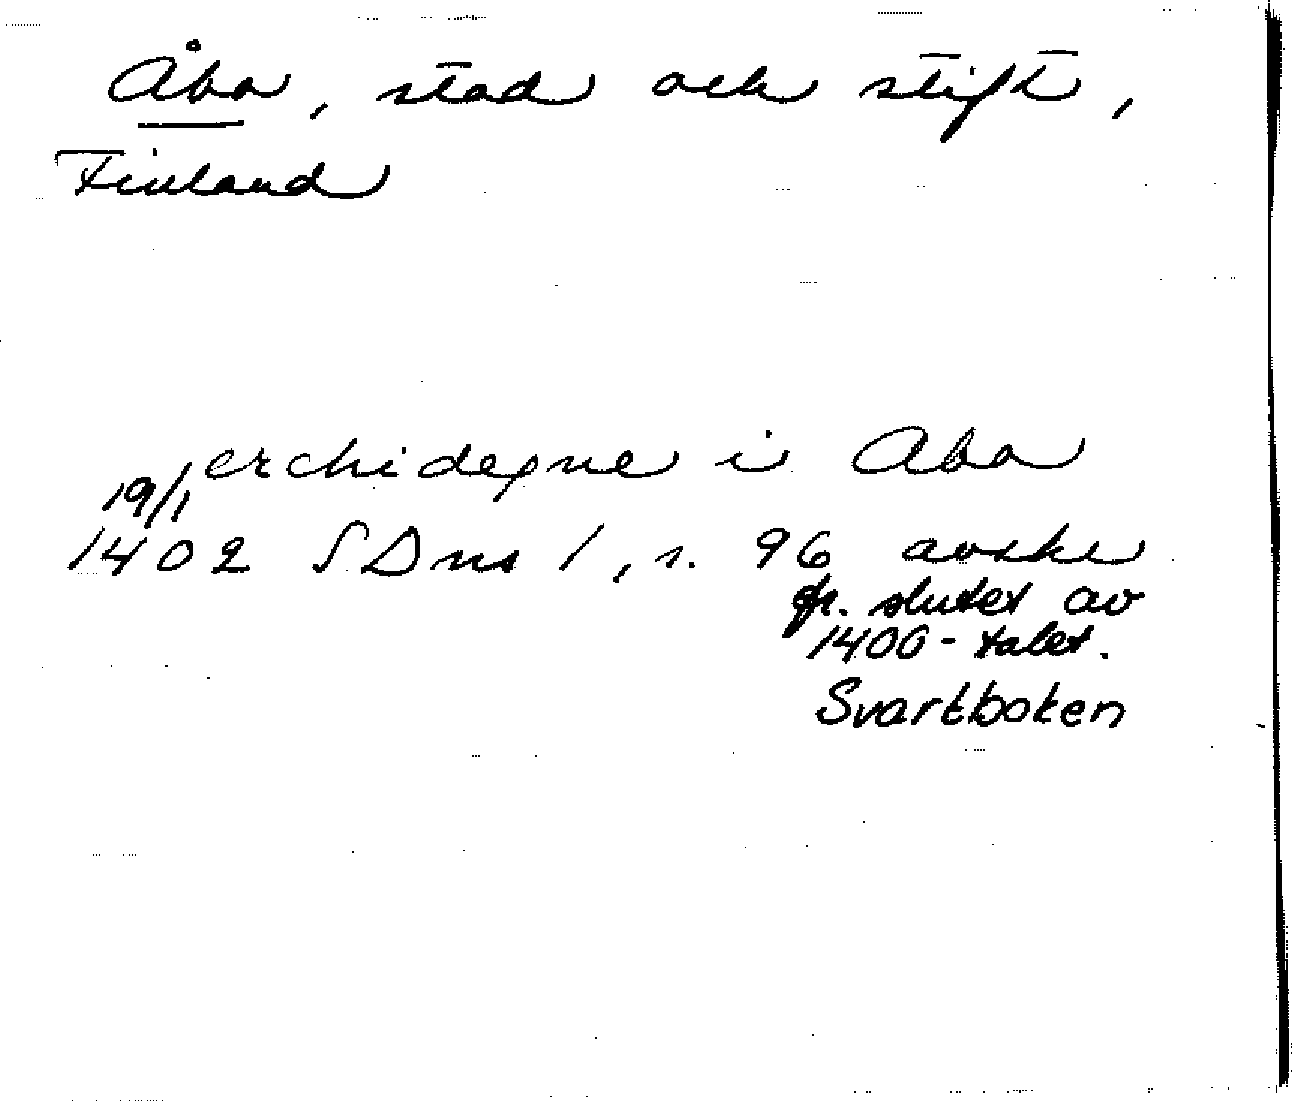 Åbo, stad och stift,
Finland
erchidegne i Abo
19/1
1402 SDns 1, s. 96 avskr
fr. slutet av
1400-talet.
Svartboken